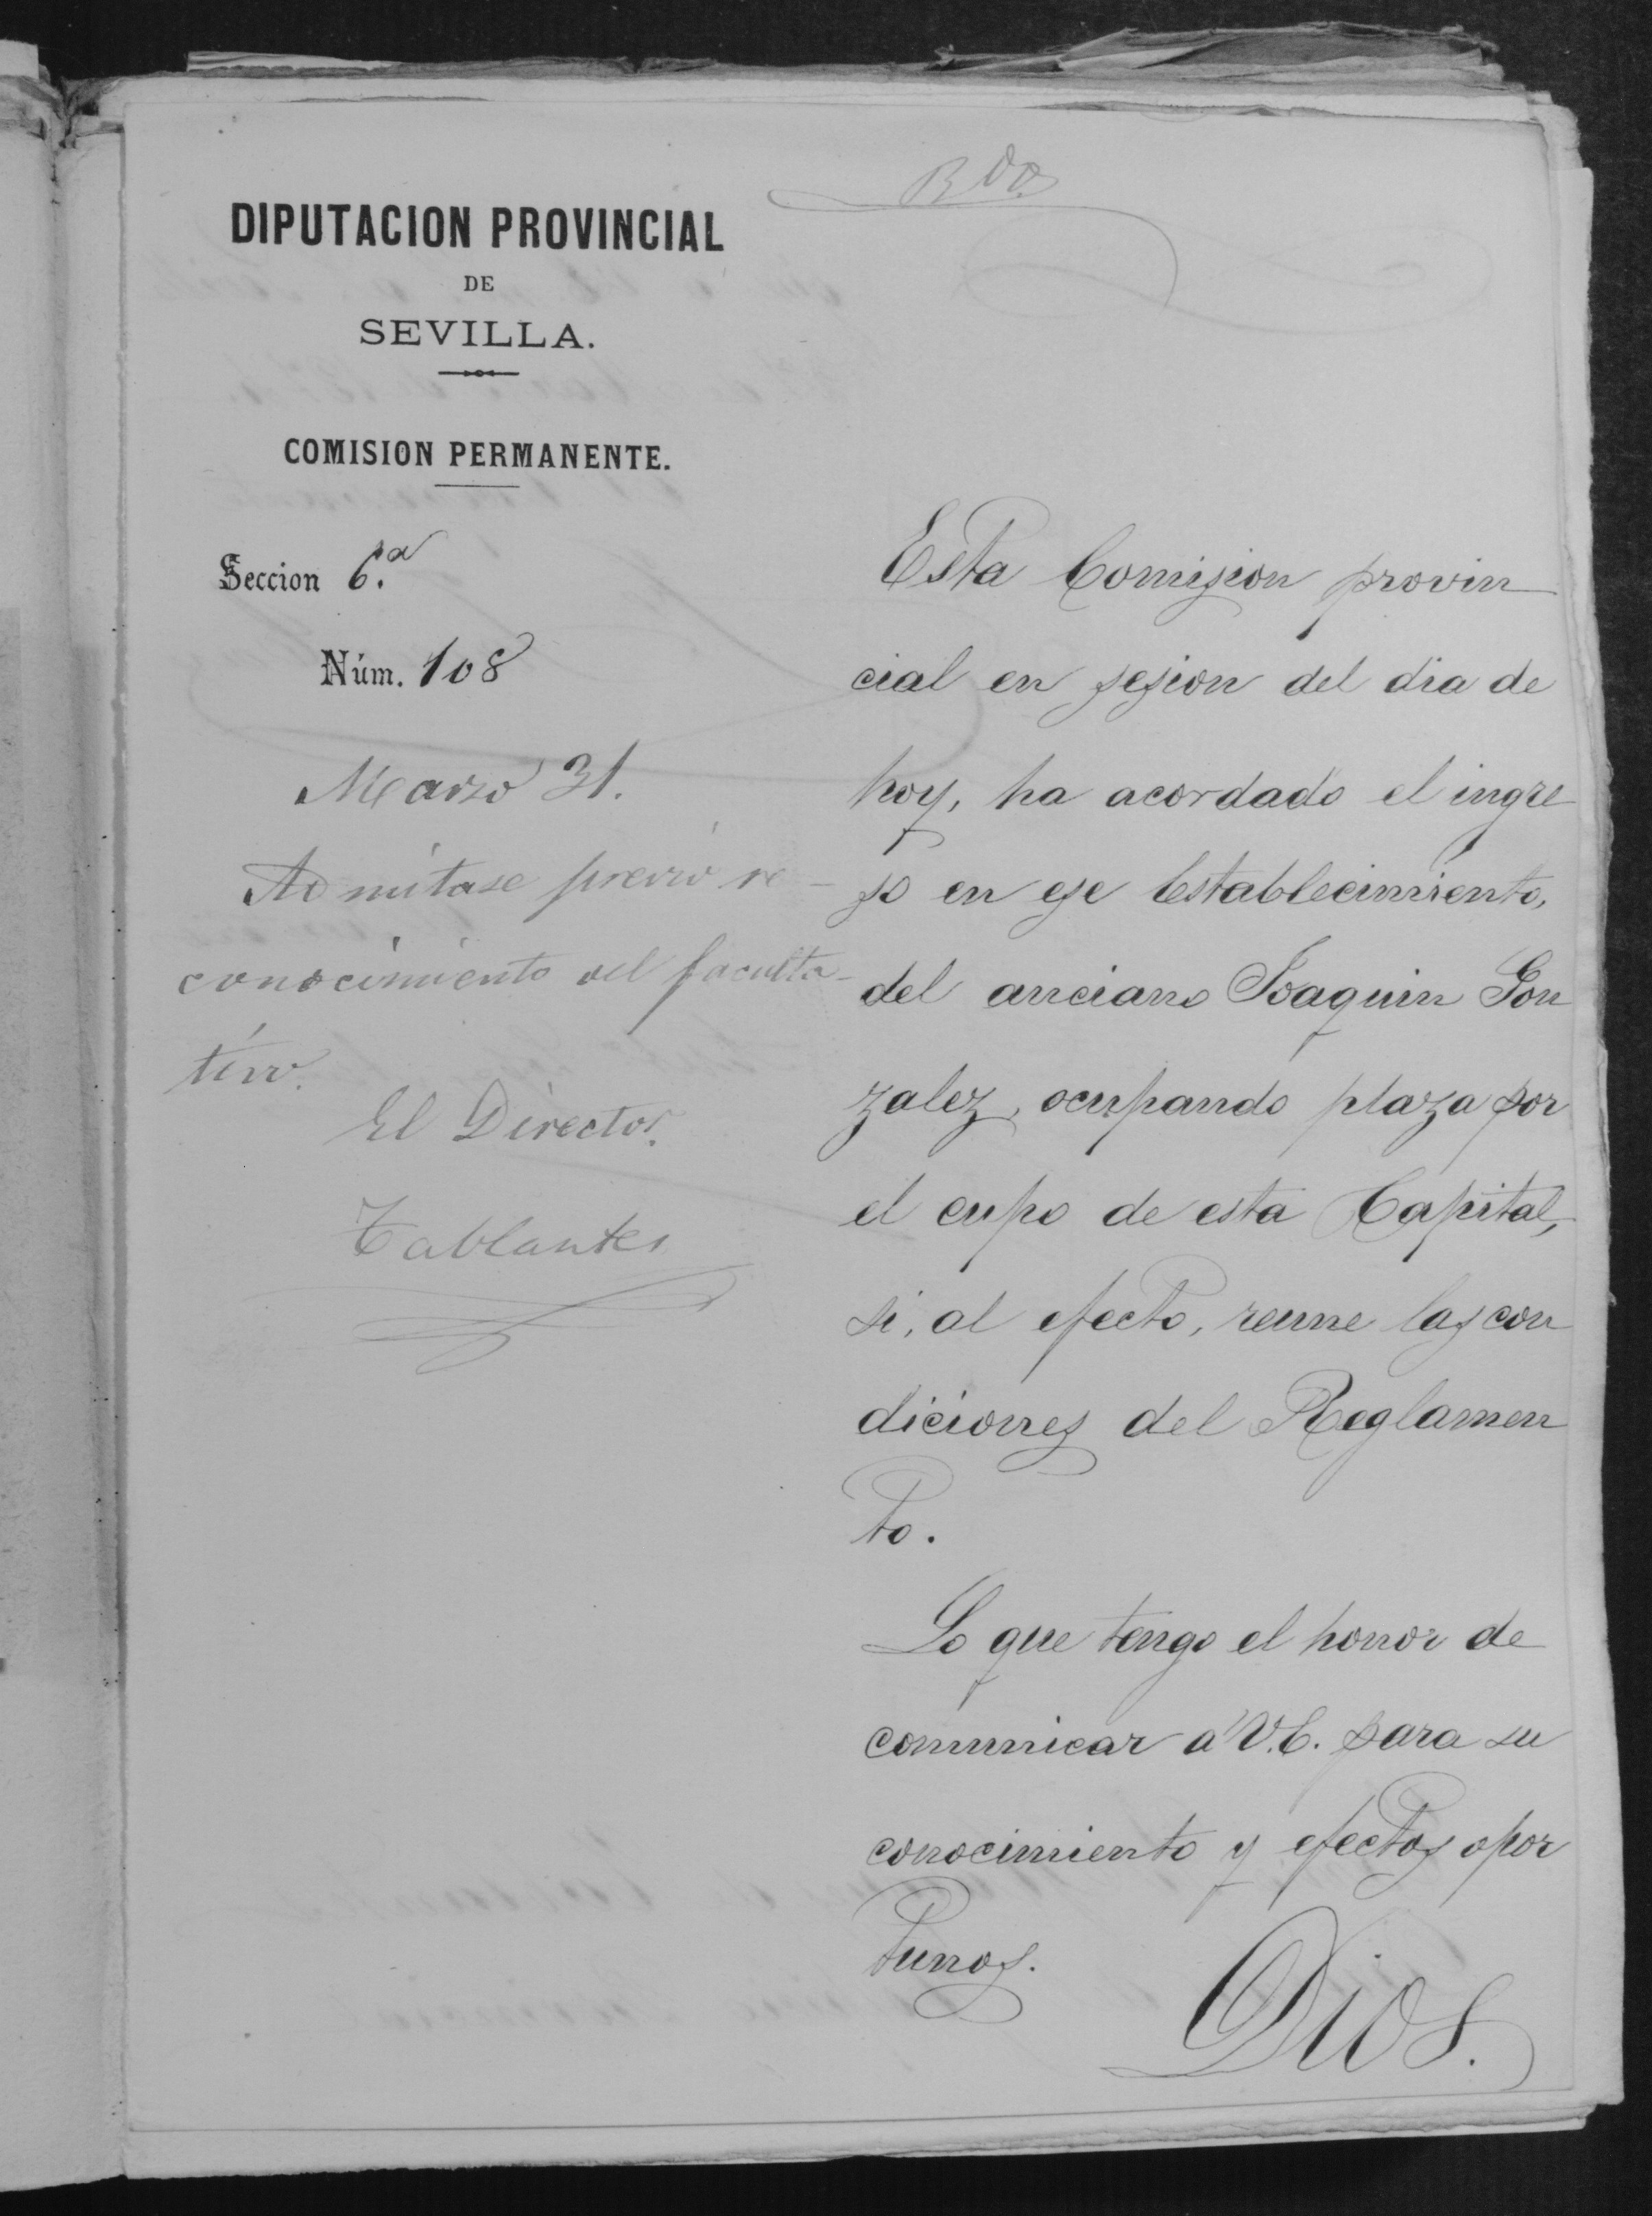 Rdo.
DIPUTACION PROVINCIAL
DE
SEVILLA.
COMISION PERMANENTE.
Seccion 6.a
Núm. 108
Marzo 31.
Admitase previo re-
conocimiento del faculta-
tivo.
El Director.
Tablantes
Esta Comision provin
cial en sesion del dia de
hoy, ha acordado el ingre
so en ese Establecimiento,
del anciano Joaquin Gon
zalez, ocupando plaza por
el cupo de esta Capital,
si, al efecto, reune las con
diciones del Reglamen
to.
Lo que tengo el honor de
comunicar a V.E. para su
conocimiento y efectos opor
tunos.
Dios.